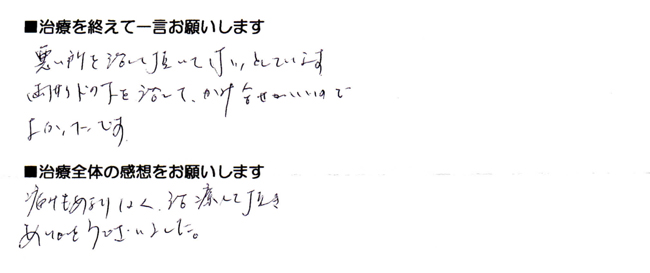 ■治療を終えて一言お願いします
悪い所を治して頂いてほっとしています
両サイドの下を治して、かみ合せがいいので
よかったです。
■治療全体の感想をお願いします
痛みもあまりなく、治療して頂き
ありがとうございました。